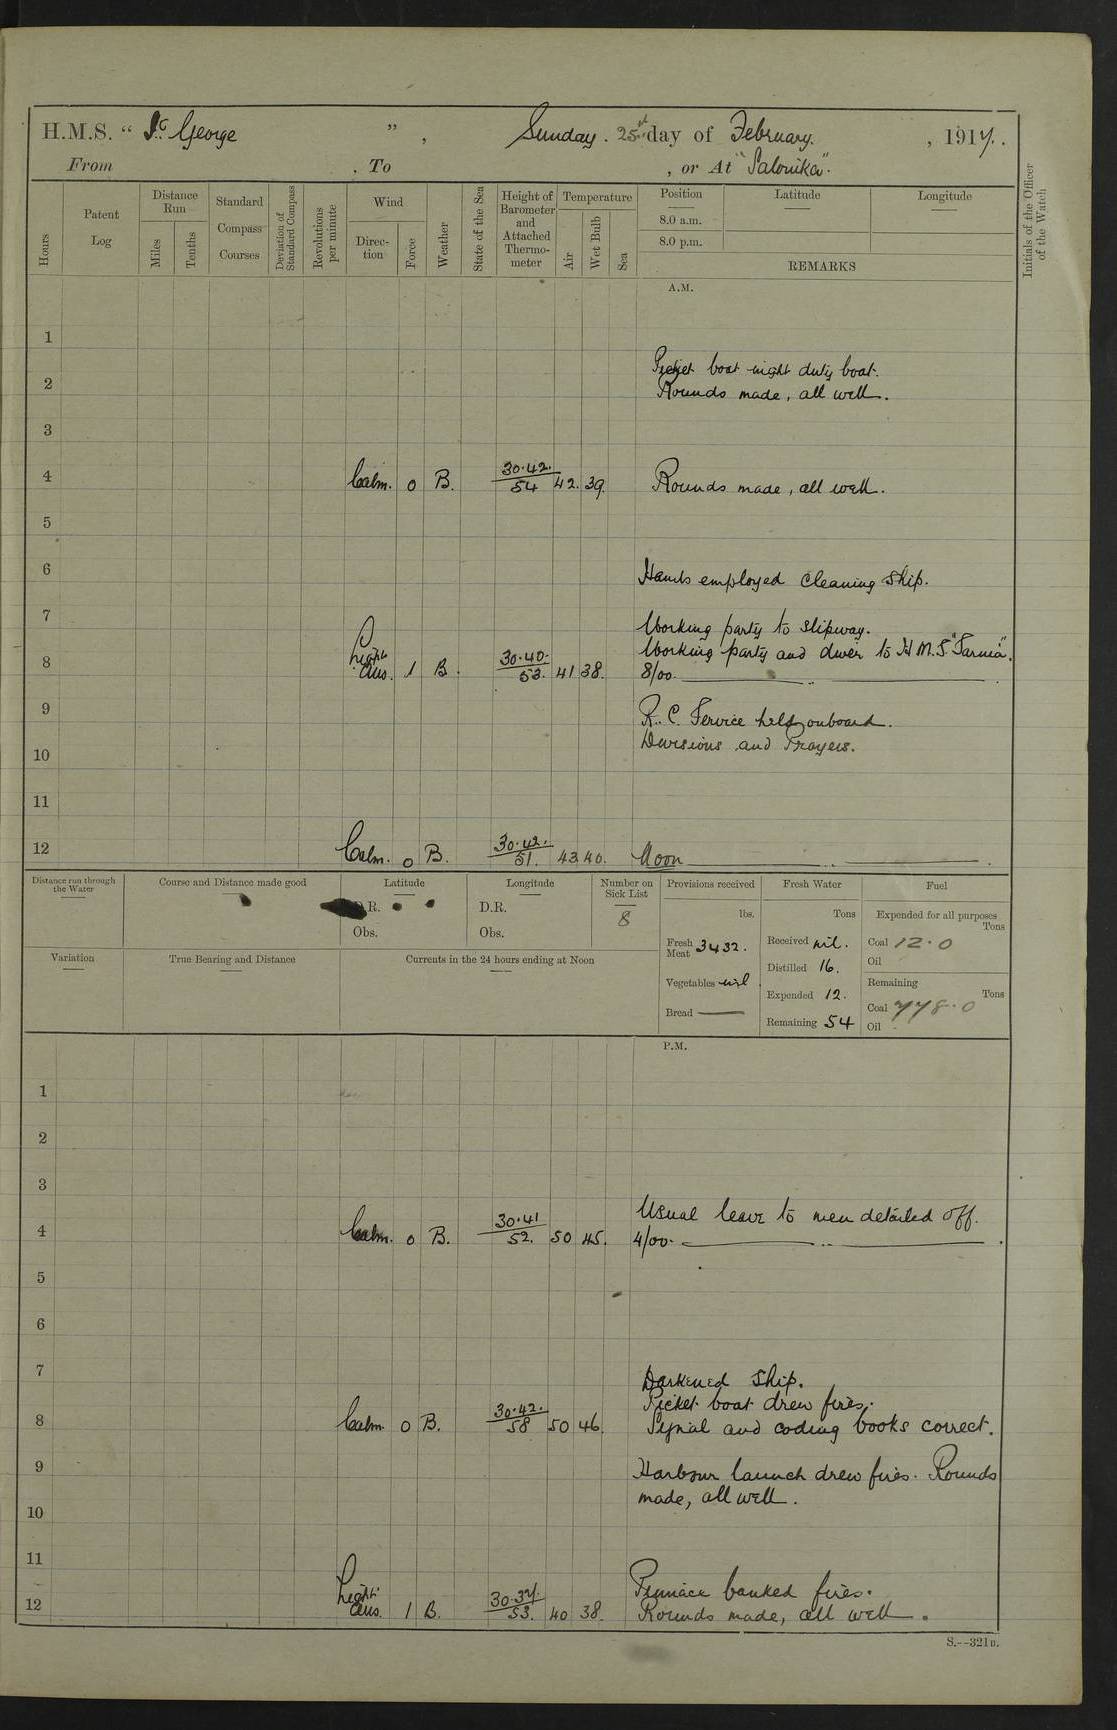 H.M.S. “ St George ” , Sunday. 25th day of February. , 1917.
From , To , or At "Salonika".
Hours
Patent Log
Distance Run
Miles
Tenths
Standard Compass Courses
Deviation of Standard Compass
Revolutions per minute
Wind
Direc- tion
Force
Weather
State of the Sea
Height of Barometer and Attached Thermo- meter
Temperature
Air
Wet Bulb
Sea
Position
8.0 a.m.
8.0 p.m.
Latitude
Longitude
REMARKS
Initials of the Officer of the Watch
A.M.
1
Picket boat night duty boat.
2 Rounds made, all well.
3
4 Calm. 0 B. 30.42. 54 42. 39. Rounds made, all well.
5
6 Hands employed cleaning ship.
7 Working party to slipway.
Working party and diver to H.M.S.
8 Light Airs. 1 B. 30.40. 53. 41 38. 8/00.
9 R.C. Service held onboard.
Divisions and Prayers.
10
11
12 Calm. 0 B. 30.42. 51. 43 40. Noon
Distance run through the Water
Course and Distance made good
Latitude
D.R.
Obs.
Longitude
D.R.
Obs.
Number on Sick List
8
Provisions received
lbs.
Fresh Meat 3432.
Vegetables nil
Bread
Fresh Water
Tons
Received nil.
Distilled 16.
Expended 12.
Remaining 54
Fuel
Expended for all purposes
Tons
Coal 12.0
Oil
Remaining
Tons
Coal 778.0
Oil
Variation
True Bearing and Distance
Currents in the 24 hours ending at Noon
P.M.
1
2
3
Usual leave to men detailed off.
4 Calm. 0 B. 30.41 52. 50 45. 4/00.
5
6
7 Darkened ship.
Picket boat drew fires.
8 Calm. 0 B. 30.42. 58 50 46. Signal and coding books correct.
9 Harbour launch drew fires. Rounds
made, all well.
10
11
Pinnace banked fires.
12 Light Airs. 1 B. 30.37. 53. 40 38. Rounds made, all well.
S.--321B.